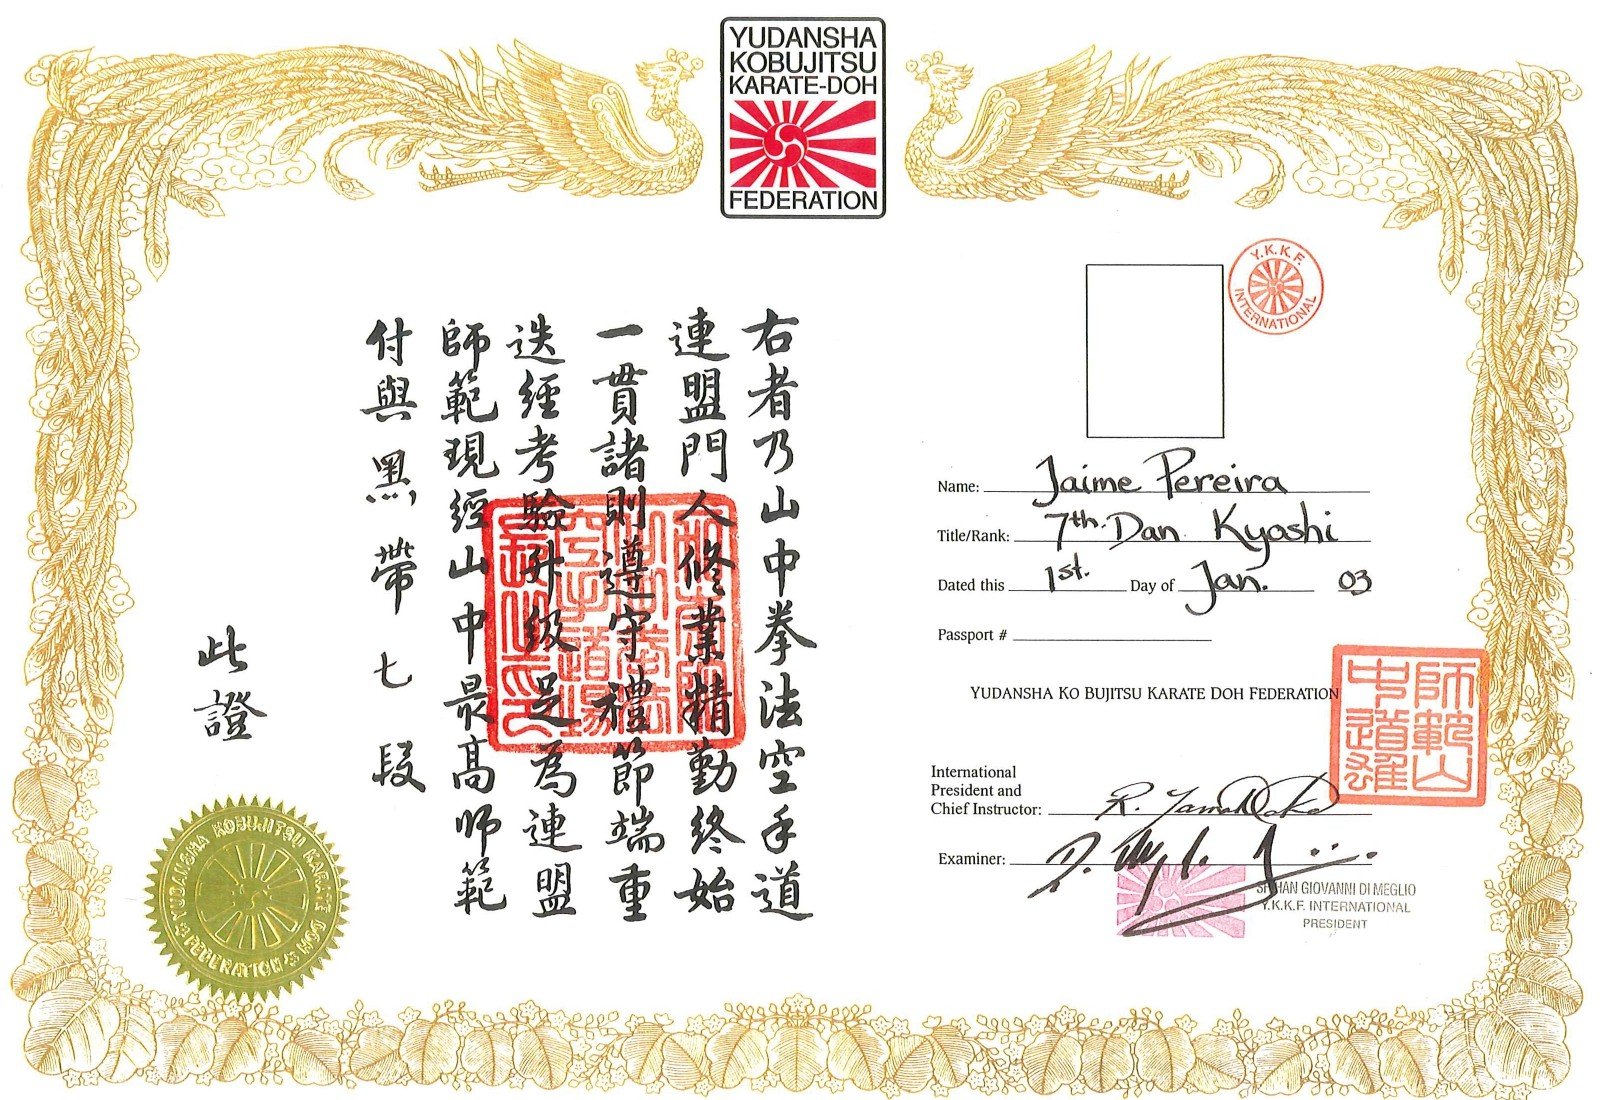 YUDANSHA
KOBUJITSU
KARATE-DOH
FEDERATION
右者乃山中拳法空手道
連盟門人修業精勤終始
一貫諸則遵守禮節端重
迭經考驗升級足為連盟
師範現經山中最高師範
付與黑帶七段
此證
YUDANSHA KOBUJITSU KARATE DOH
FEDERATION
Y.K.K.F.
INTERNATIONAL
Name: Jaime Pereira
Title/Rank: 7th. Dan Kyoshi
Dated this 1st. Day of Jan. 03
Passport #
YUDANSHA KO BUJITSU KARATE DOH FEDERATION
師範山
中道雄
International
President and
Chief Instructor: R. Yamanaka
Examiner:
SHIHAN GIOVANNI DI MEGLIO
Y.K.K.F. INTERNATIONAL
PRESIDENT